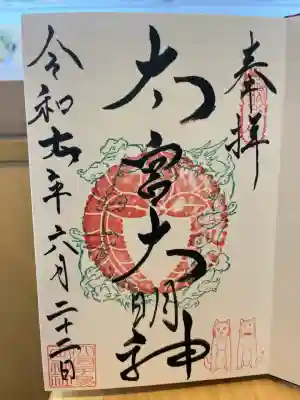 奉拝
大宮大明神
令和七年六月二十二日